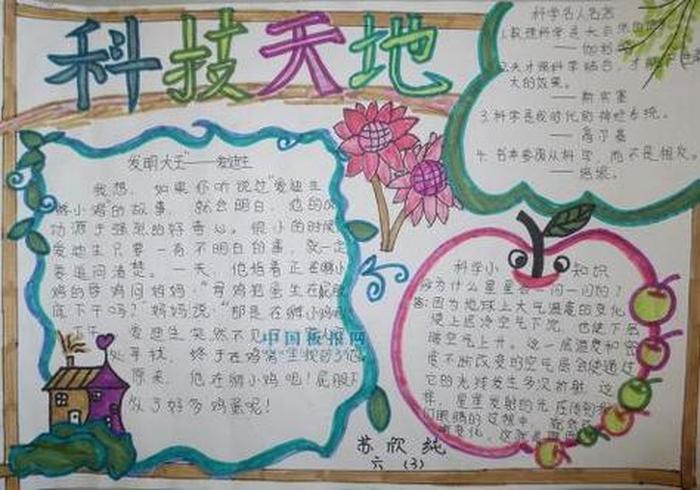 科技天地
科学名人名言
1.
——伽
大的效果。
——斯宾塞
3.科学是我时代的神经系统。
——高尔基
4.
发明大王——爱迪生
我想,如果你听说过"爱迪生
孵小鸡"的故事,就会明白,他的成
功源于强烈的好奇心。很小的时候
爱迪生只要一有不明白的事,就一定
要追问清楚。一天,他指着正在孵小
鸡的母鸡问妈妈:"母鸡把蛋坐在屁股
底下干吗?"妈妈说:"那是在孵小鸡
下午 爱迪生突然不见了
处寻找,终于在鸡窝里找到了他
原来,他在孵小鸡呢!屁股下
了好多鸡蛋呢!
中国板报网
科学小知识
为什么星星会一闪一闪的?
答:因为地球上大气温度的变化
使上层冷空气下沉,也使下层
暖空气上升。这一层温度和密
度不断改变的空气层会使通过
它的光线发生多次折射,这
样,星星发射的光在传到我
们眼睛的过程中,就会
变化,这就是
苏欣纯
六(3)